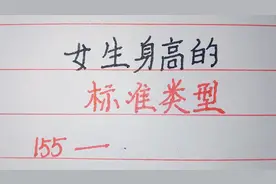 女生身高的
标准类型
155 一